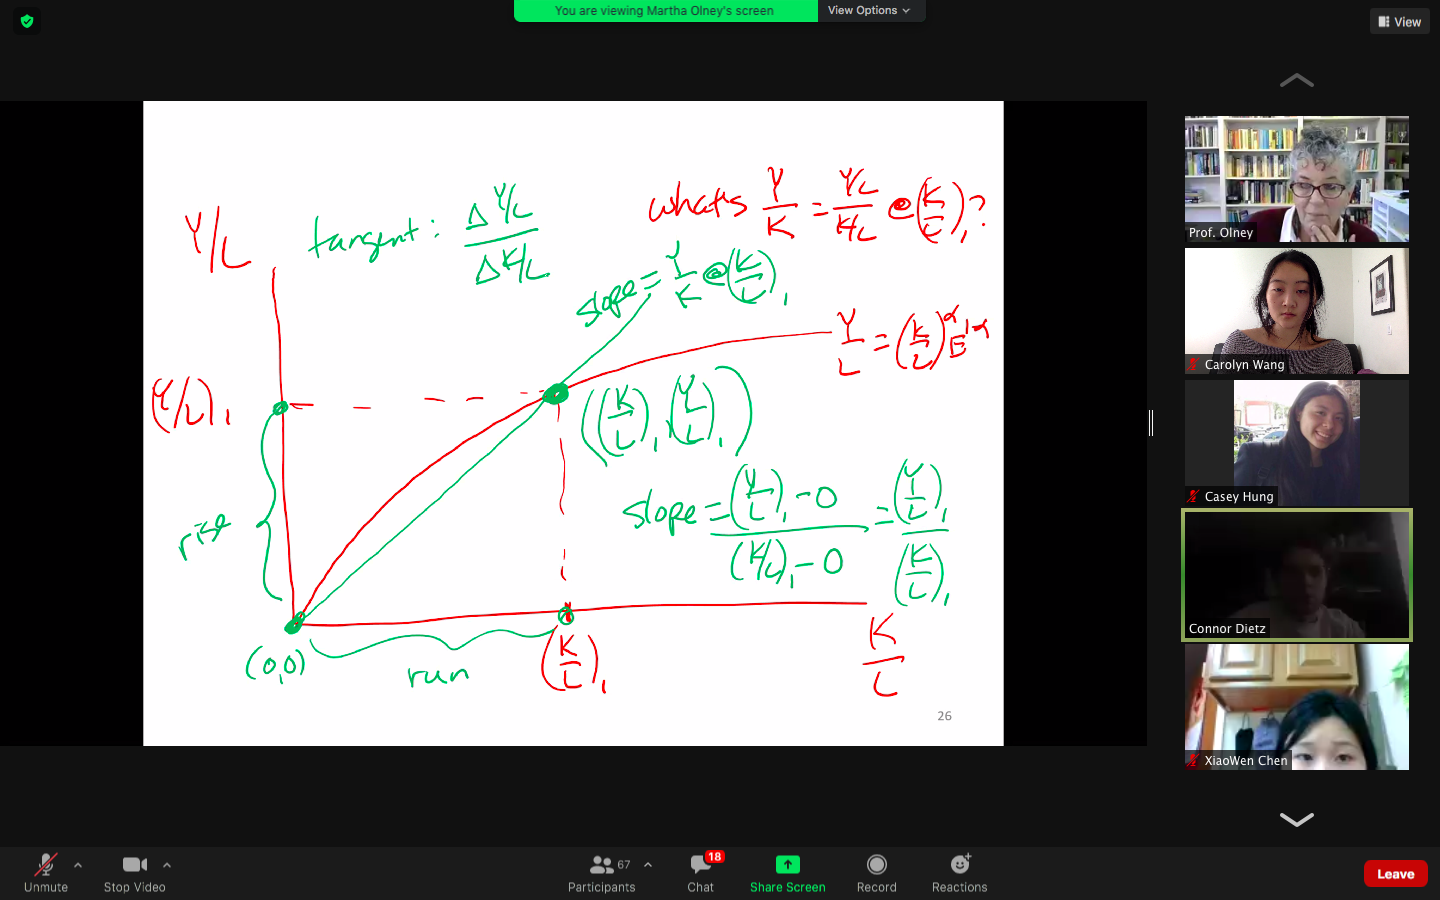 You are viewing Martha Olney's screen
View Options
View
what's Y/K = Y/L / K/L @ (K/L)₁?
Y/L
tangent: Δ Y/L / Δ K/L
slope = Y/K @ (K/L)₁
Y/L = (K/L)^α E^1-α
(Y/L)₁
((K/L)₁, (Y/L)₁)
rise
slope = (Y/L)₁ - 0 / (K/L)₁ - 0 = (Y/L)₁ / (K/L)₁
(0,0)
run
(K/L)₁
K/L
26
Prof. Olney
Carolyn Wang
Casey Hung
Connor Dietz
XiaoWen Chen
Unmute
Stop Video
Participants
67
Chat
18
Share Screen
Record
Reactions
Leave